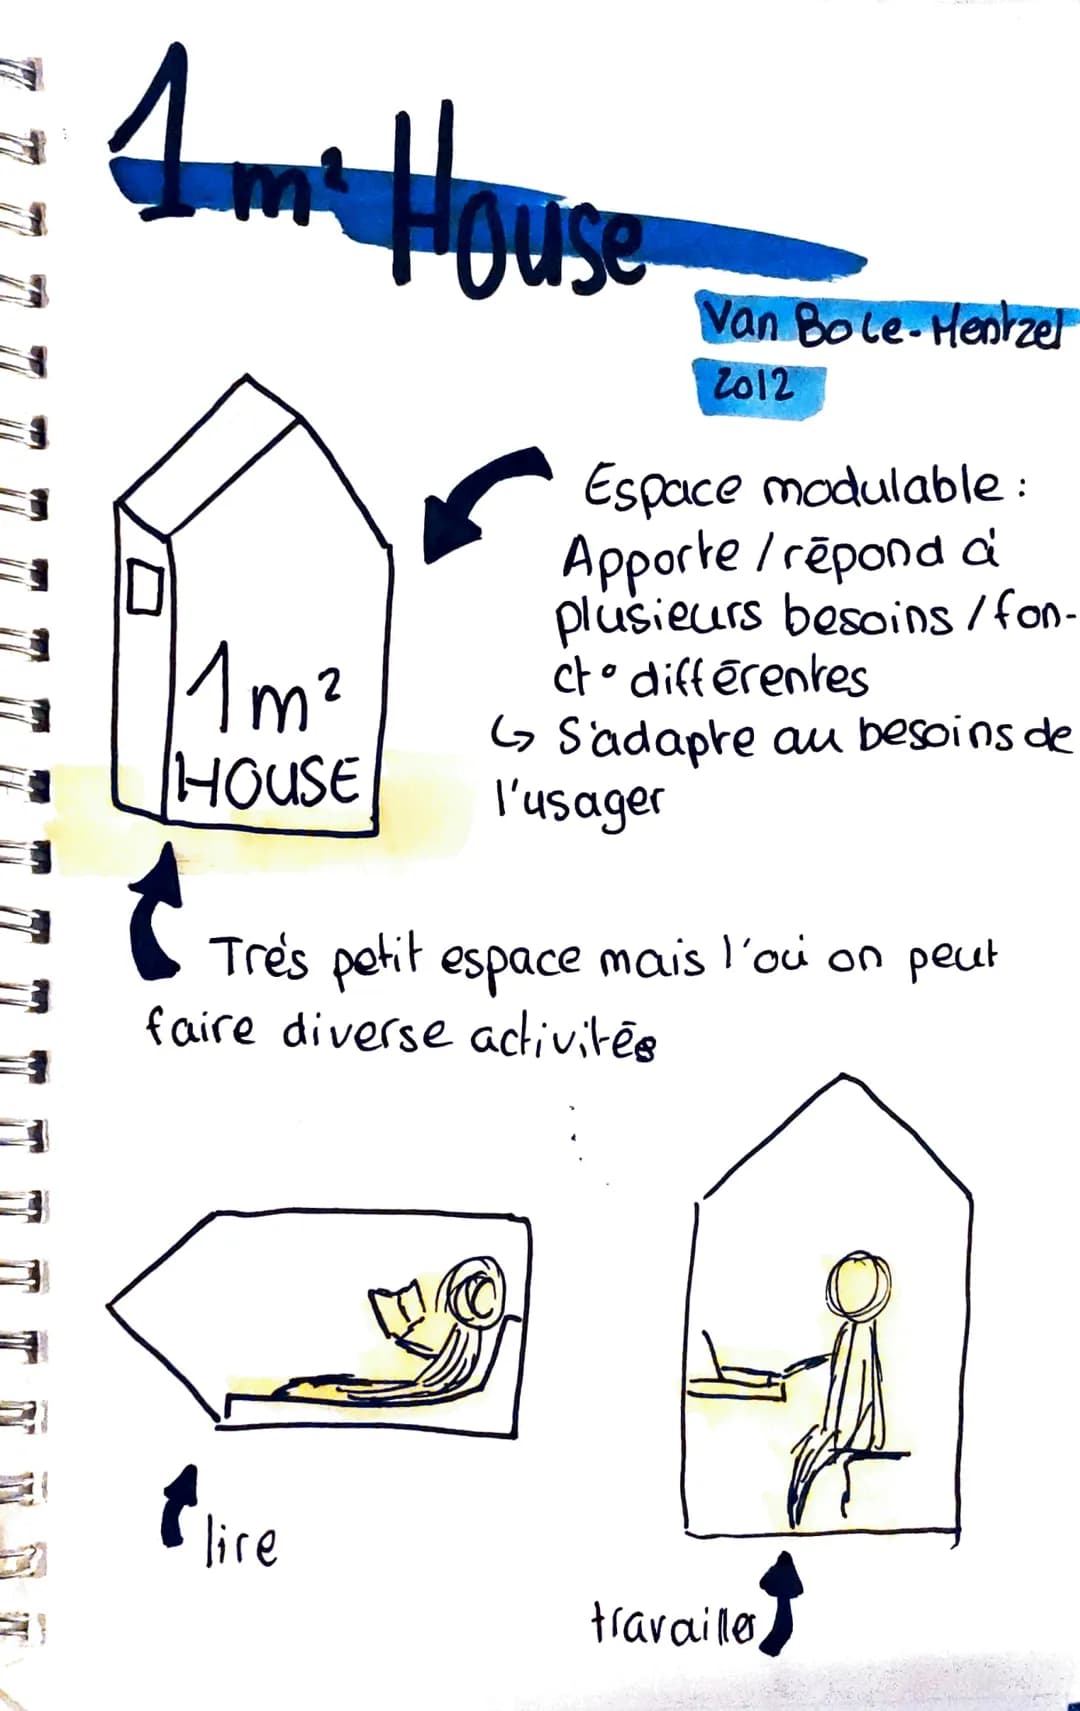 1 m² House
Van Bole-Hentzel
2012
Espace modulable :
Apporte / répond à
plusieurs besoins / fon-
ct° différentes
↳ S'adapte au besoins de
l'usager
1 m²
HOUSE
Trés petit espace mais l'où on peut
faire diverse activités
lire
travailler